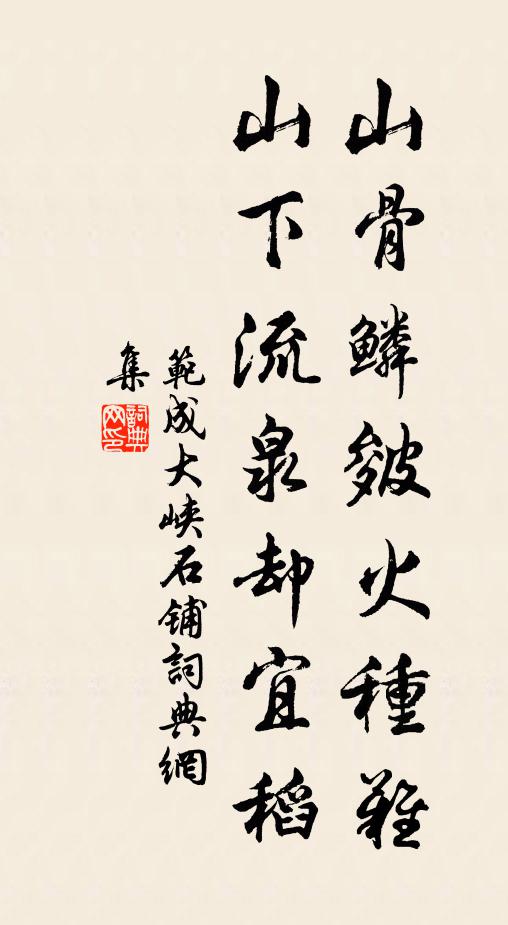 山骨鱗皴火種難
山下流泉却宜稻
範成大峽石鋪詞典網
集
詞典网印